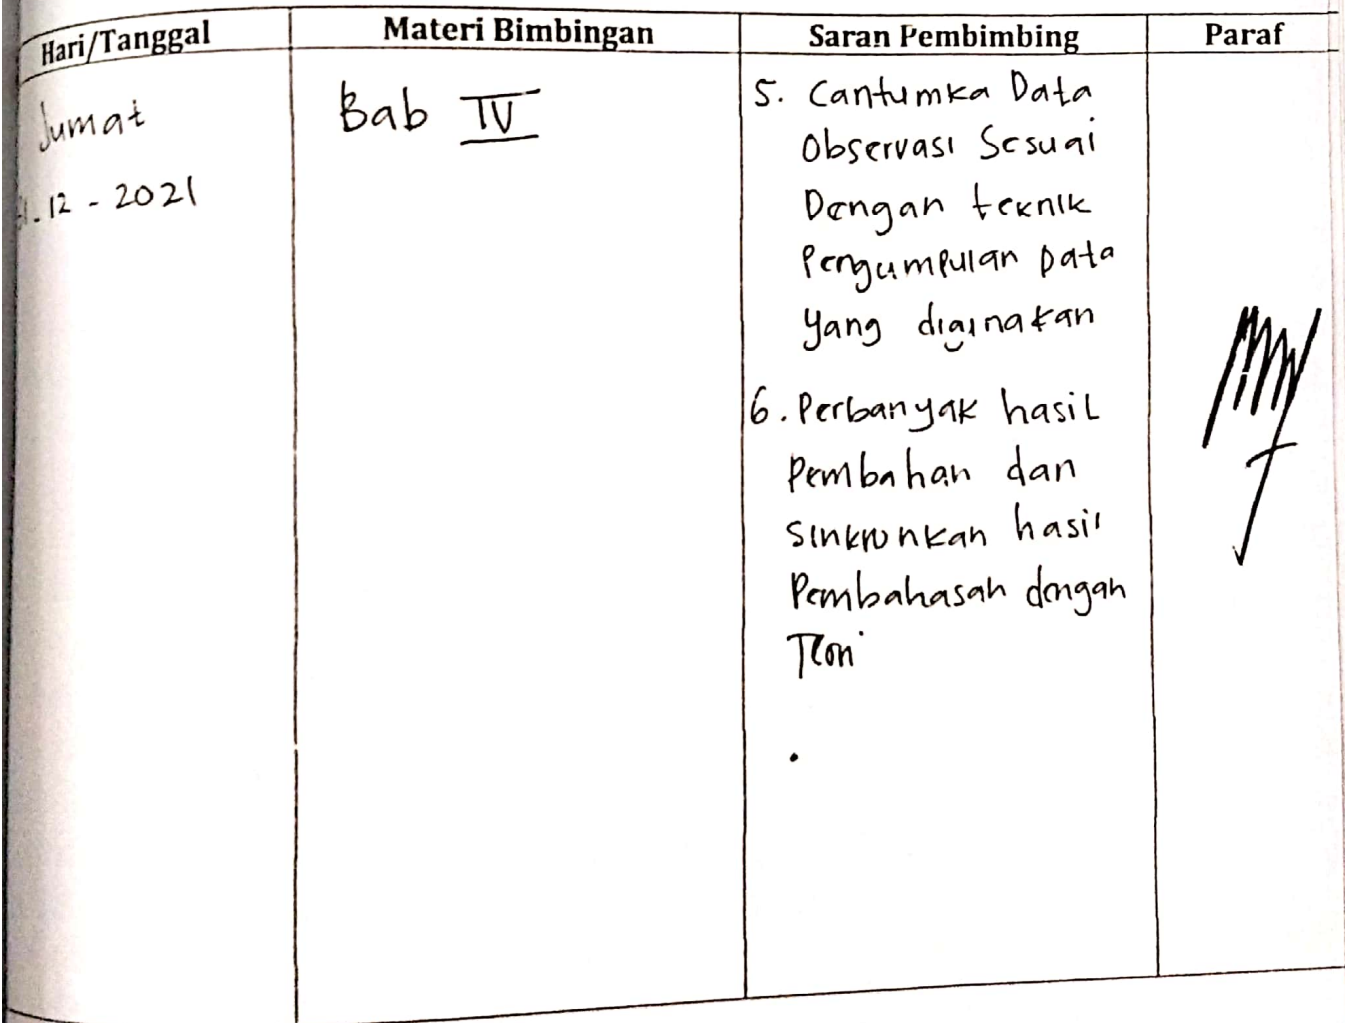 Hari/Tanggal Materi Bimbingan Saran Pembimbing Paraf
Jumat
12 - 2021
Bab IV
5. Cantumka Data
Observasi Sesuai
Dengan teknik
Pengumpulan Data
yang diginakan
6. Perbanyak hasil
Pembahan dan
sinkronkan hasil
Pembahasan dengan
Teori